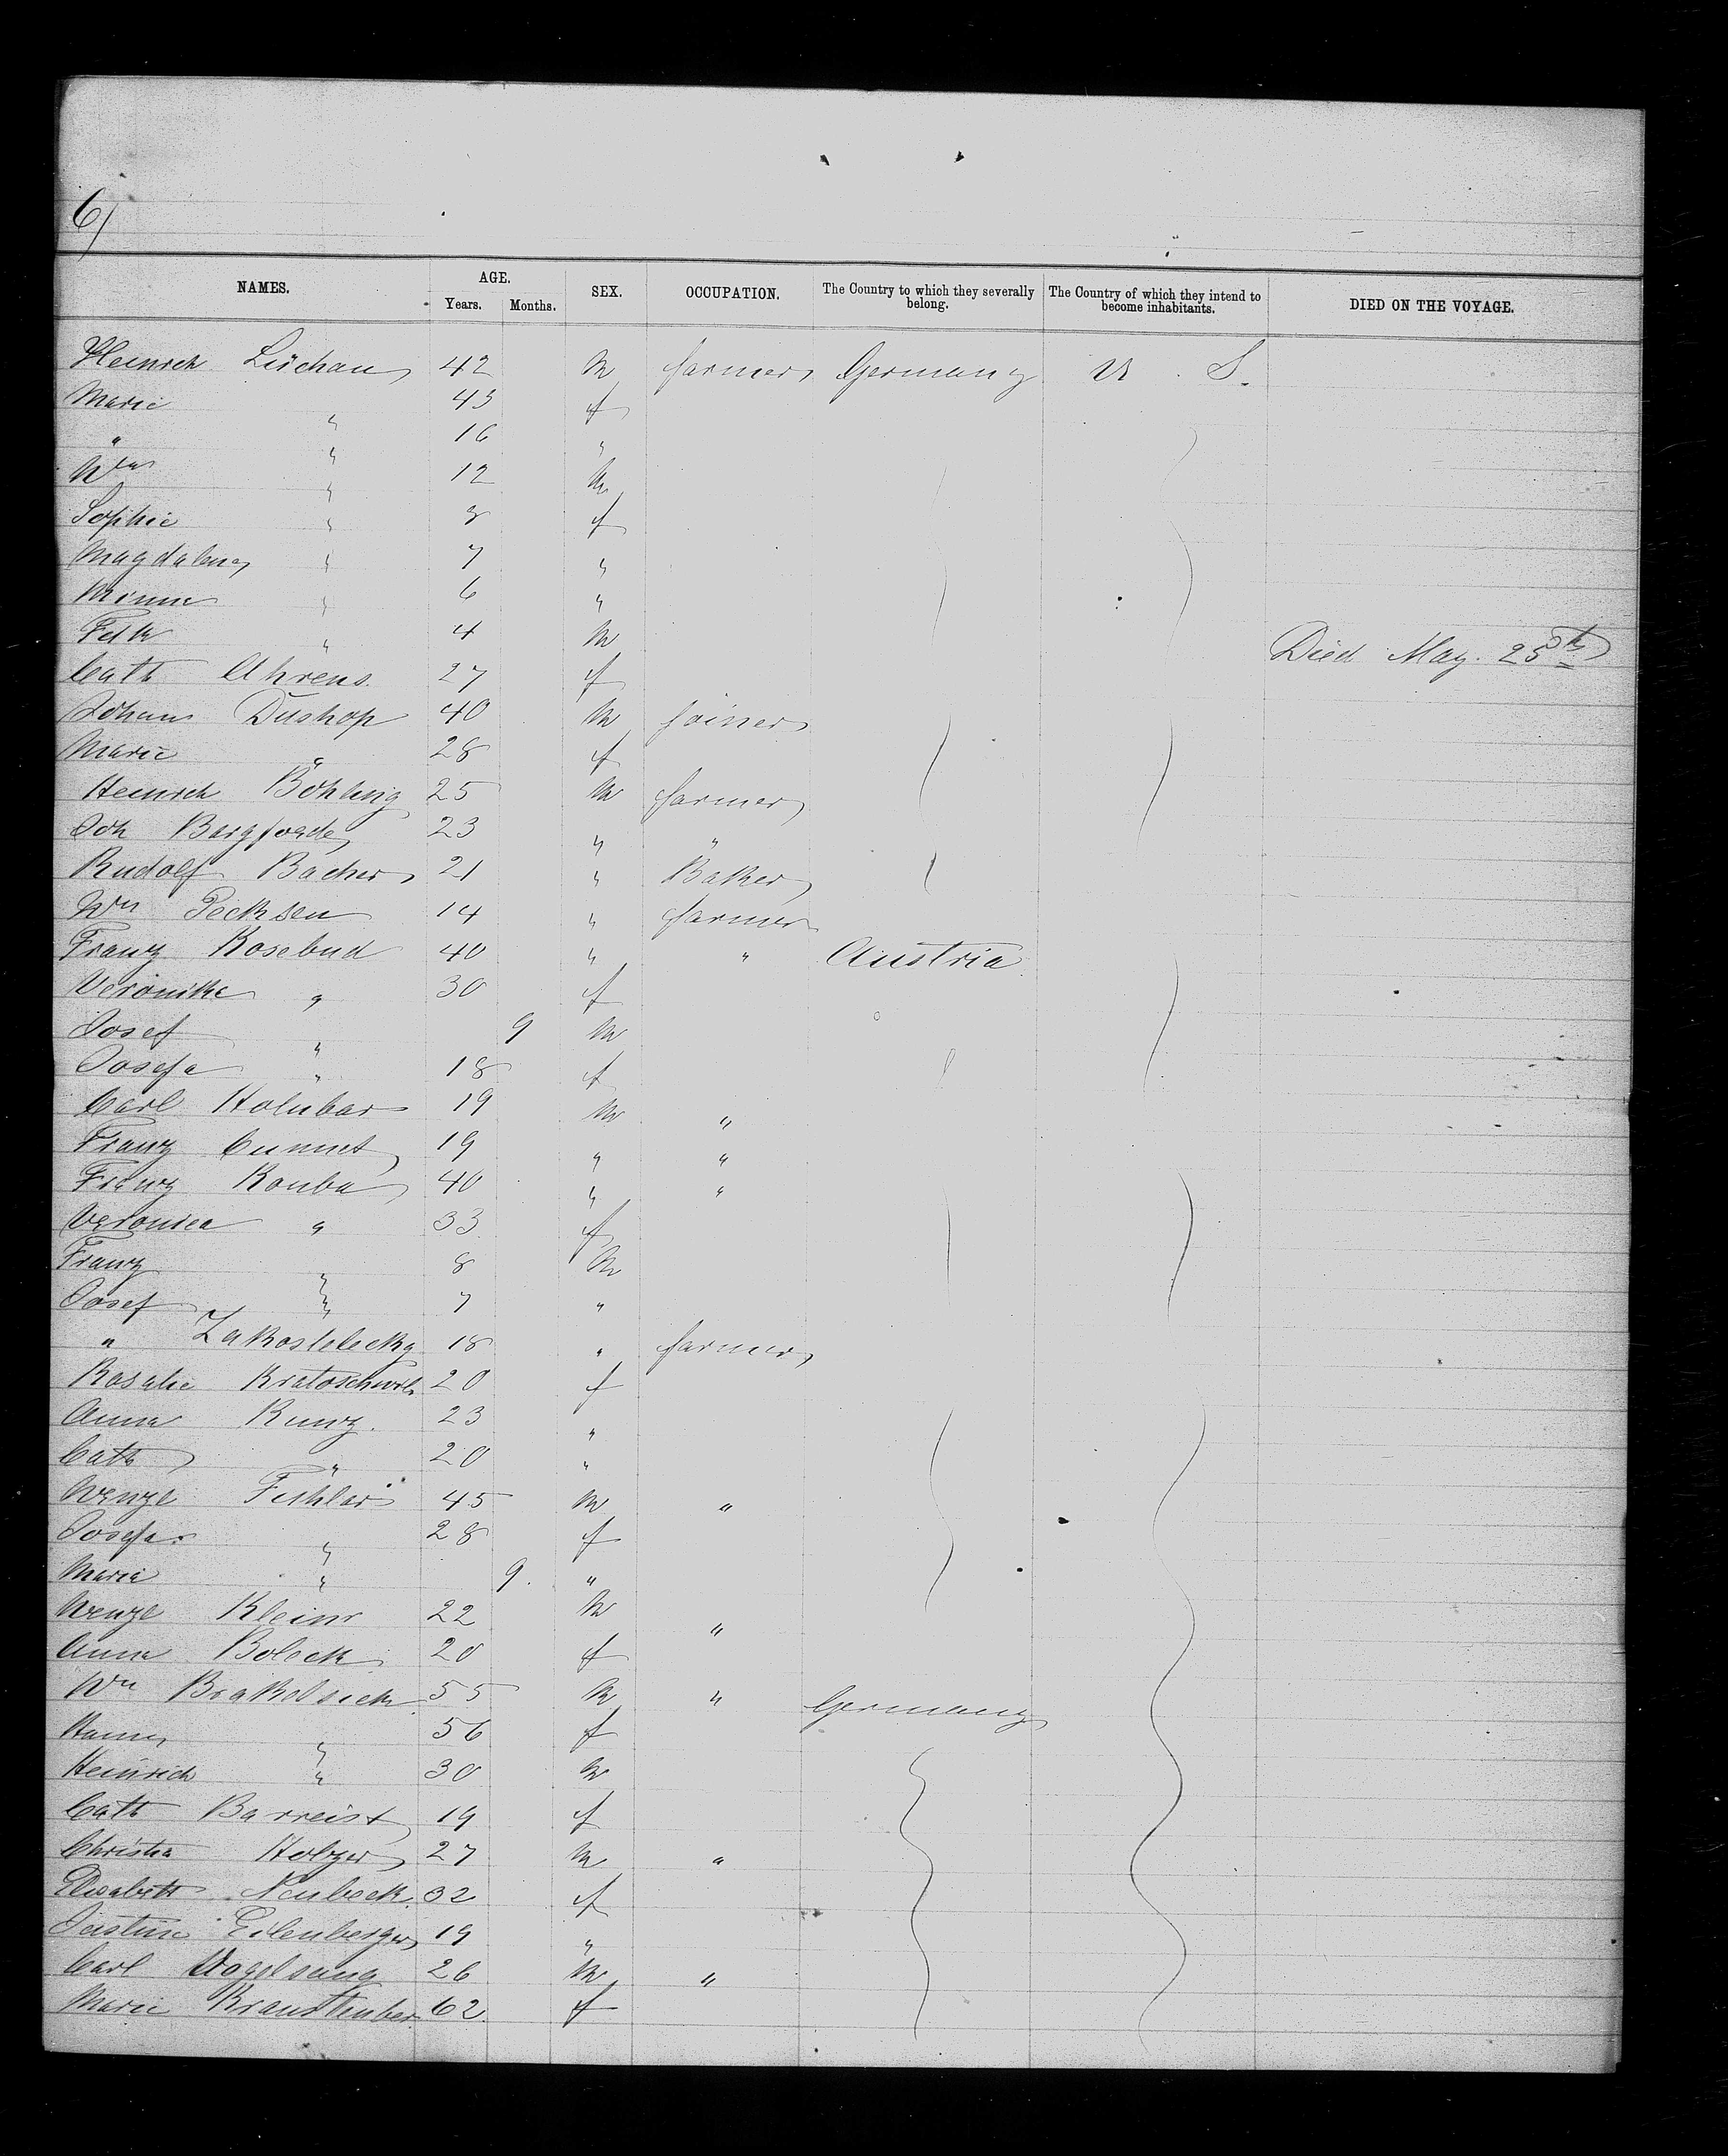 6)
NAMES. AGE. Years. Months. SEX. OCCUPATION. The Country to which they severally belong. The Country of which they intend to become inhabitants. DIED ON THE VOYAGE.
Heinrich Lüchau 42 M farmer Germany U. S.
Marie " 43 f
" " 16 "
Wm " 12 M
Sophie " 8 f
Magdalena " 7 "
Minna " 6 "
" 4 M Died May. 25th
Cath Ahrens. 27 f
Johann Dushop 40 M joiner
Marie " 28 f
Heinrich Böhling 25 M farmer
Joh Bargfrede 23 " "
Rudolf Bacher 21 " Baker
Wm Pecksen 14 " farmer
Franz Kosebud 40 " " Austria
Veronika " 30 f
Josef " 9 M
Josefa " 18 f
Carl Holubar 19 M "
Franz 19 " "
Franz Kouba 40 " "
Veronica " 33 f
Franz " 8 M
Josef " 7 "
" Zakostelecky 18 " farmer
Rosalie Kratoschwil 20 f
Anna Kunz. 23 "
Cath " 20 "
Wenzl 45 M "
Josefa " 28 f
Maria " 9. "
Wenzl Klein 22 M "
Anna Boleck 20 f
Wm Brakelsiek 55 M " Germany
Hanna " 56 f
Heinrich " 30 M
Cath Barreist 19 f
Christia Holzer 27 M "
Elisabeth Neubeck. 32 f
Justine Eilenberger 19 "
Carl Vogelsang 26 M "
Marie 62. f